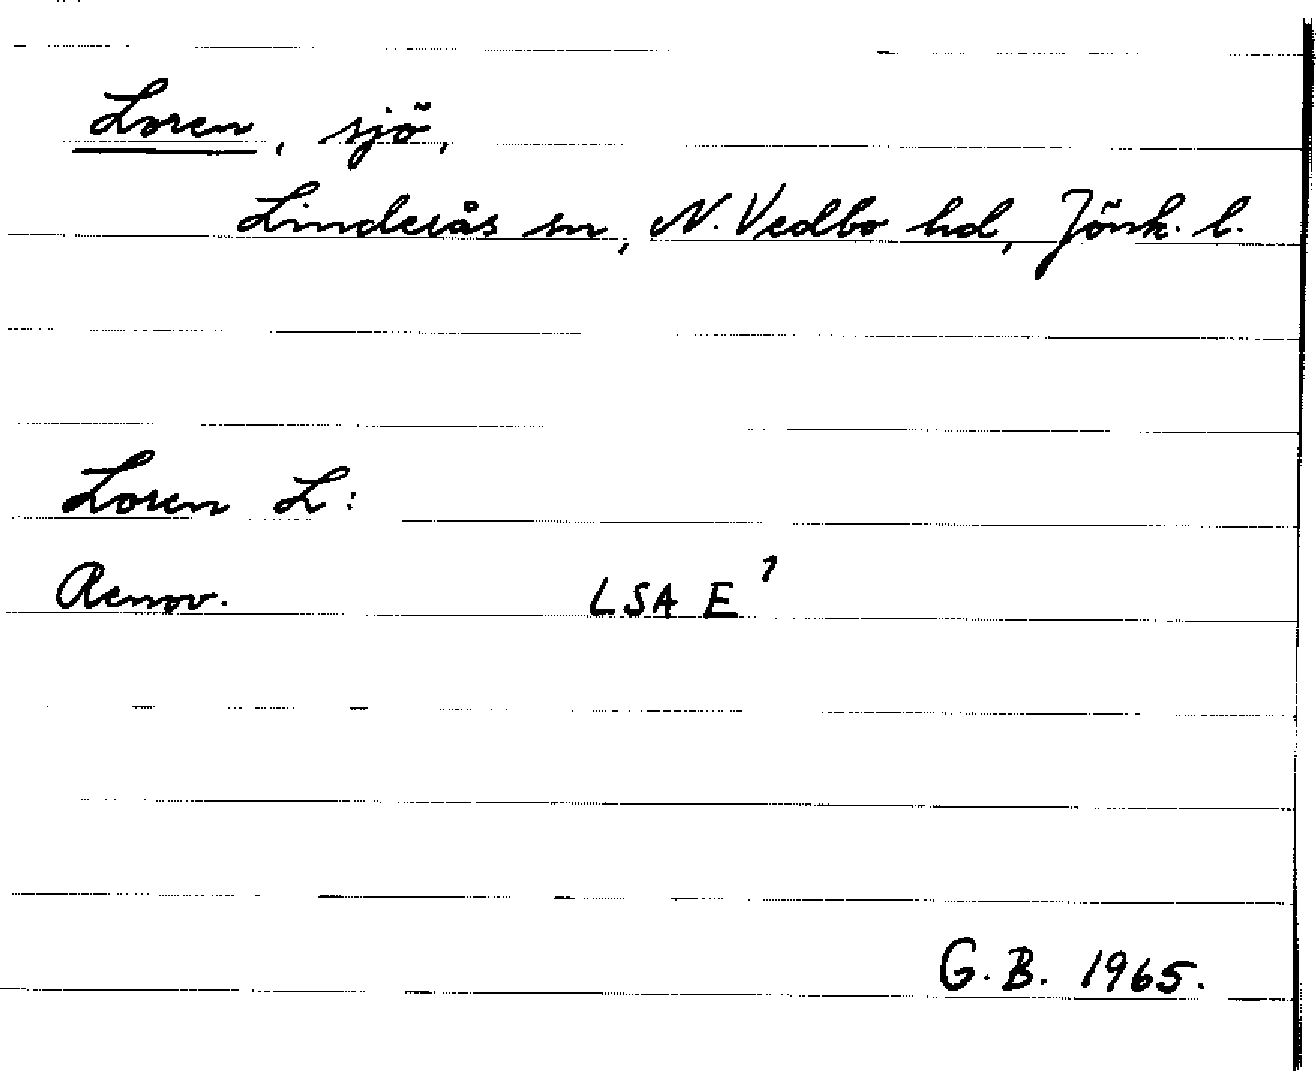 Loren, sjö,
Linderås sn, N. Vedbo hd, Jönk. l.
Loren L:
Renov. LSA E⁷
G. B. 1965.